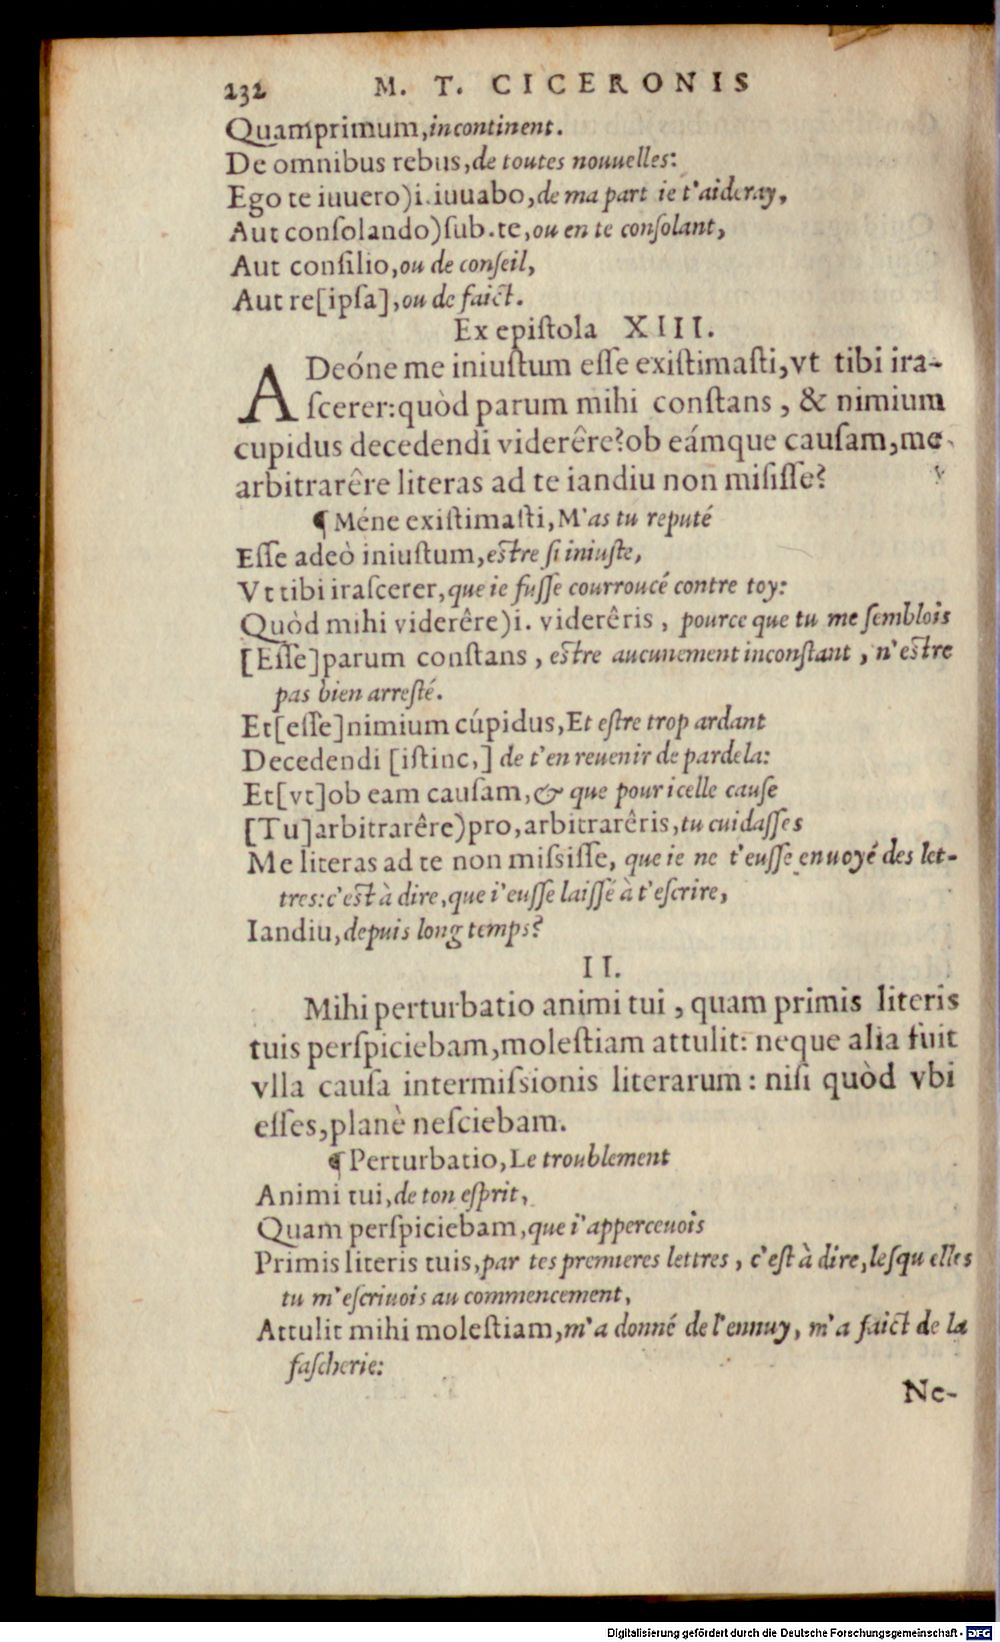 232 M. T. CICERONIS
Quamprimum, incontinent.
De omnibus rebus, de toutes nouuelles:
Ego te iuuero)i.iuuabo, de ma part ie t'aideray,
Aut conſolando)ſub.te, ou en te conſolant,
Aut conſilio, ou de conſeil,
Aut re[ipſa], ou de faict.
Ex epiſtola XIII.
ADeóne me iniuſtum eſſe exiſtimaſti, vt tibi ira-
ſcerer: quòd parum mihi conſtans, & nimium
cupidus decedendi viderêre? ob eámque cauſam, me
arbitrarêre literas ad te iandiu non miſiſſe?
¶ Méne exiſtimaſti, M'as tu reputé
Eſſe adeò iniuſtum, eſtre ſi iniuſte,
Vt tibi iraſcerer, que ie fuſſe courroucé contre toy:
Quòd mihi viderêre)i. viderêris, pource que tu me ſemblois
[Eſſe]parum conſtans, eſtre aucunement inconſtant, n'eſtre
pas bien arreſté.
Et[eſſe]nimium cúpidus, Et eſtre trop ardant
Decedendi [iſtinc,] de t'en reuenir de pardela:
Et[vt]ob eam cauſam, & que pour icelle cauſe
[Tu]arbitrarêre)pro, arbitrarêris, tu cuidaſſes
Me literas ad te non miſsiſſe, que ie ne t'euſſe enuoyé des let-
tres: c'eſt à dire, que i'euſſe laiſſé à t'eſcrire,
Iandiu, depuis long temps?
II.
Mihi perturbatio animi tui, quam primis literis
tuis perſpiciebam, moleſtiam attulit: neque alia fuit
vlla cauſa intermiſsionis literarum: niſi quòd vbi
eſſes, planè neſciebam.
¶ Perturbatio, Le troublement
Animi tui, de ton eſprit,
Quam perſpiciebam, que i'apperceuois
Primis literis tuis, par tes premieres lettres, c'eſt à dire, leſquelles
tu m'eſcriuois au commencement,
Attulit mihi moleſtiam, m'a donné de l'ennuy, m'a faict de la
faſcherie:
Ne-
Digitalisierung gefördert durch die Deutsche Forschungsgemeinschaft - DFG